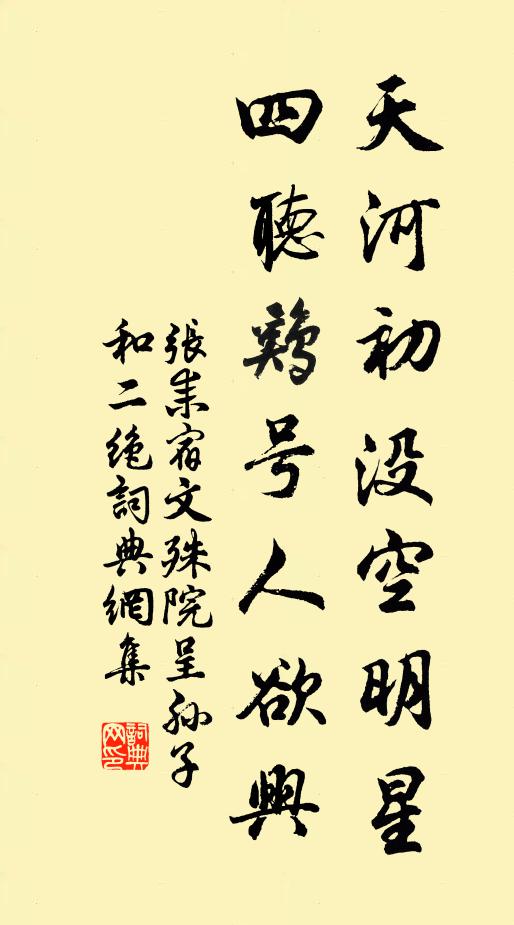 天河初没空明星
四聽鷄号人欲興
張耒宿文殊院呈孙子
和二绝詞典網集
詞典
网印